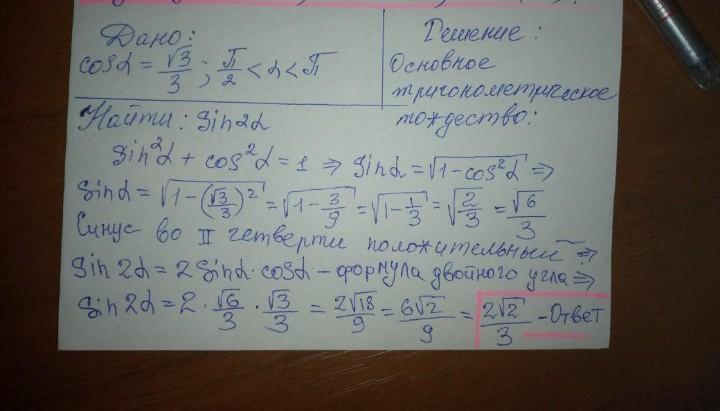 Дано:
cosα = √3/3; π/2 < α < π
Найти: Sin2α
Решение:
Основное
тригонометрическое
тождество:
Sin²α + cos²α = 1 ⇒ Sinα = √(1-cos²α) ⇒
Sinα = √(1-(√3/3)²) = √(1-3/9) = √(1-1/3) = √(2/3) = √6/3
Синус во II четверти положительный ⇒
Sin2α = 2Sinα·cosα - формула двойного угла ⇒
Sin2α = 2·√6/3·√3/3 = 2√18/9 = 6√2/9 = 2√2/3 - Ответ